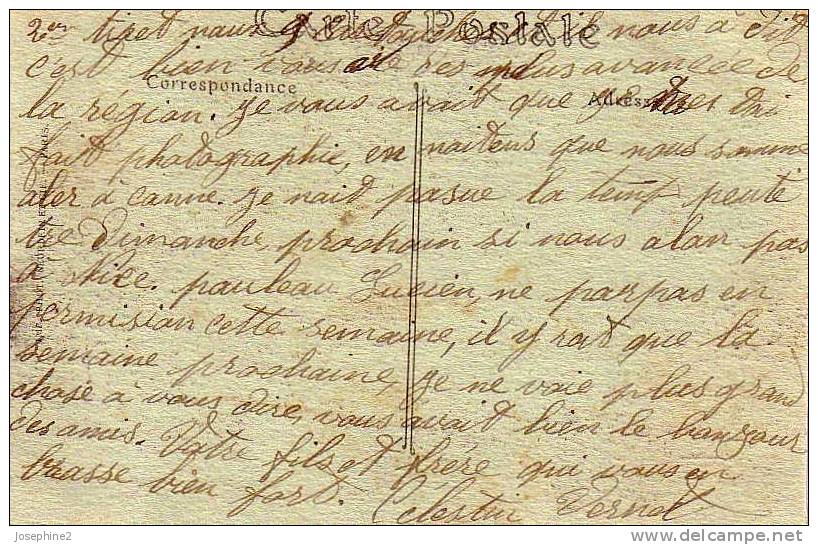 Carte Postale
2er tiret nous a dit
c'est bien plus avancée de
Correspondance
Adresse
la région. Je vous avait que
fait photographie, en que nous somme
aler à canne. Je nait pas la temp peuté
Dimanche prochain si nous alan pas
a Nice. pauleau Lucien, ne parpas en
permision cette semaine, il y rat que la
semaine prochaine, Je ne voie plus grand
chose à vous dire, vous avait bien le bonjour
des amis. Votre fils et frére qui vous en
brasse bien fort. Celestin Vernet
Josephine2
delcampe.net